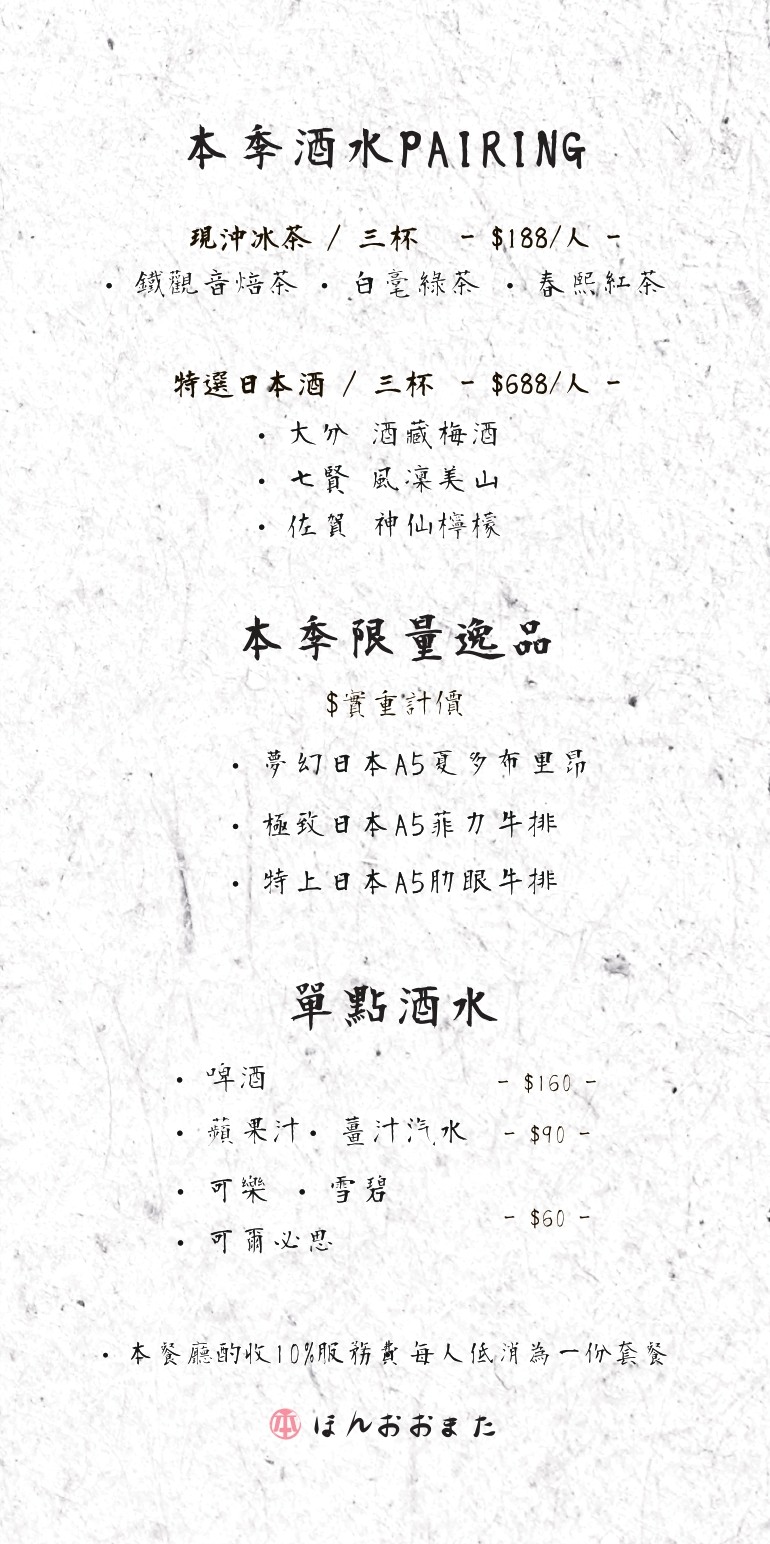 本季酒水PAIRING
現沖冰茶 / 三杯 - $188/人 -
• 鐵觀音焙茶 • 白毫綠茶 • 春熙紅茶
特選日本酒 / 三杯 - $688/人 -
• 大分 酒藏梅酒
• 七賢 風凜美山
• 佐賀 神仙檸檬
本季限量逸品
$實重計價
• 夢幻日本A5夏多布里昂
• 極致日本A5菲力牛排
• 特上日本A5肋眼牛排
單點酒水
• 啤酒 - $160 -
• 蘋果汁 • 薑汁汽水 - $90 -
• 可樂 • 雪碧
- $60 -
• 可爾必思
• 本餐廳酌收10%服務費每人低消為一份套餐
本 ほんおおまた